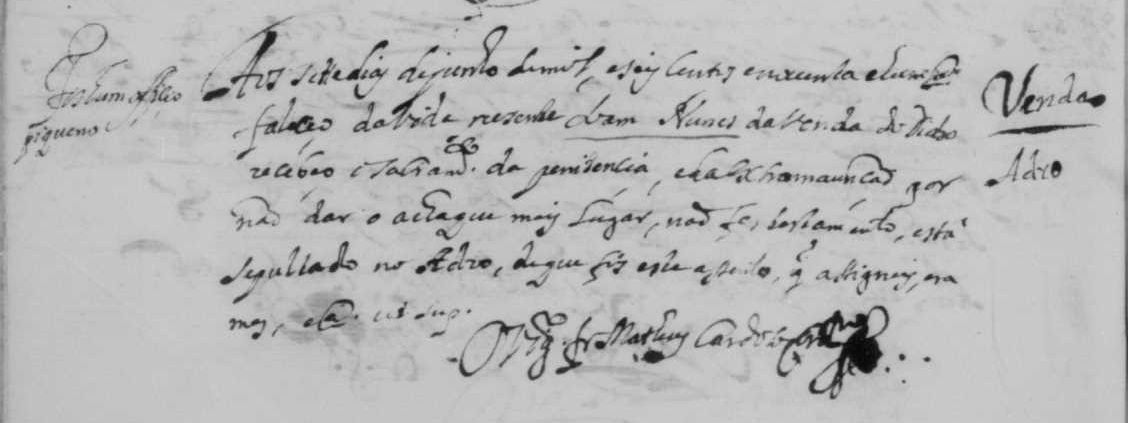 Tes hum officio
piqueno
Aos sette dias de junho de mil, e seis centos, e noventa e hum
faleceo da vida prezente Joam Nunes da Venda do
recebeo o sacram.to da penitencia, e da extremaunçaõ por
naõ dar o achaque mais lugar, naõ fes testamento, está
sepultado no Adro, de que fis este assento, q assigney, era
mes, e ut sup.
O Vig.ro fr. Matheus Cardozo
Venda
Adro